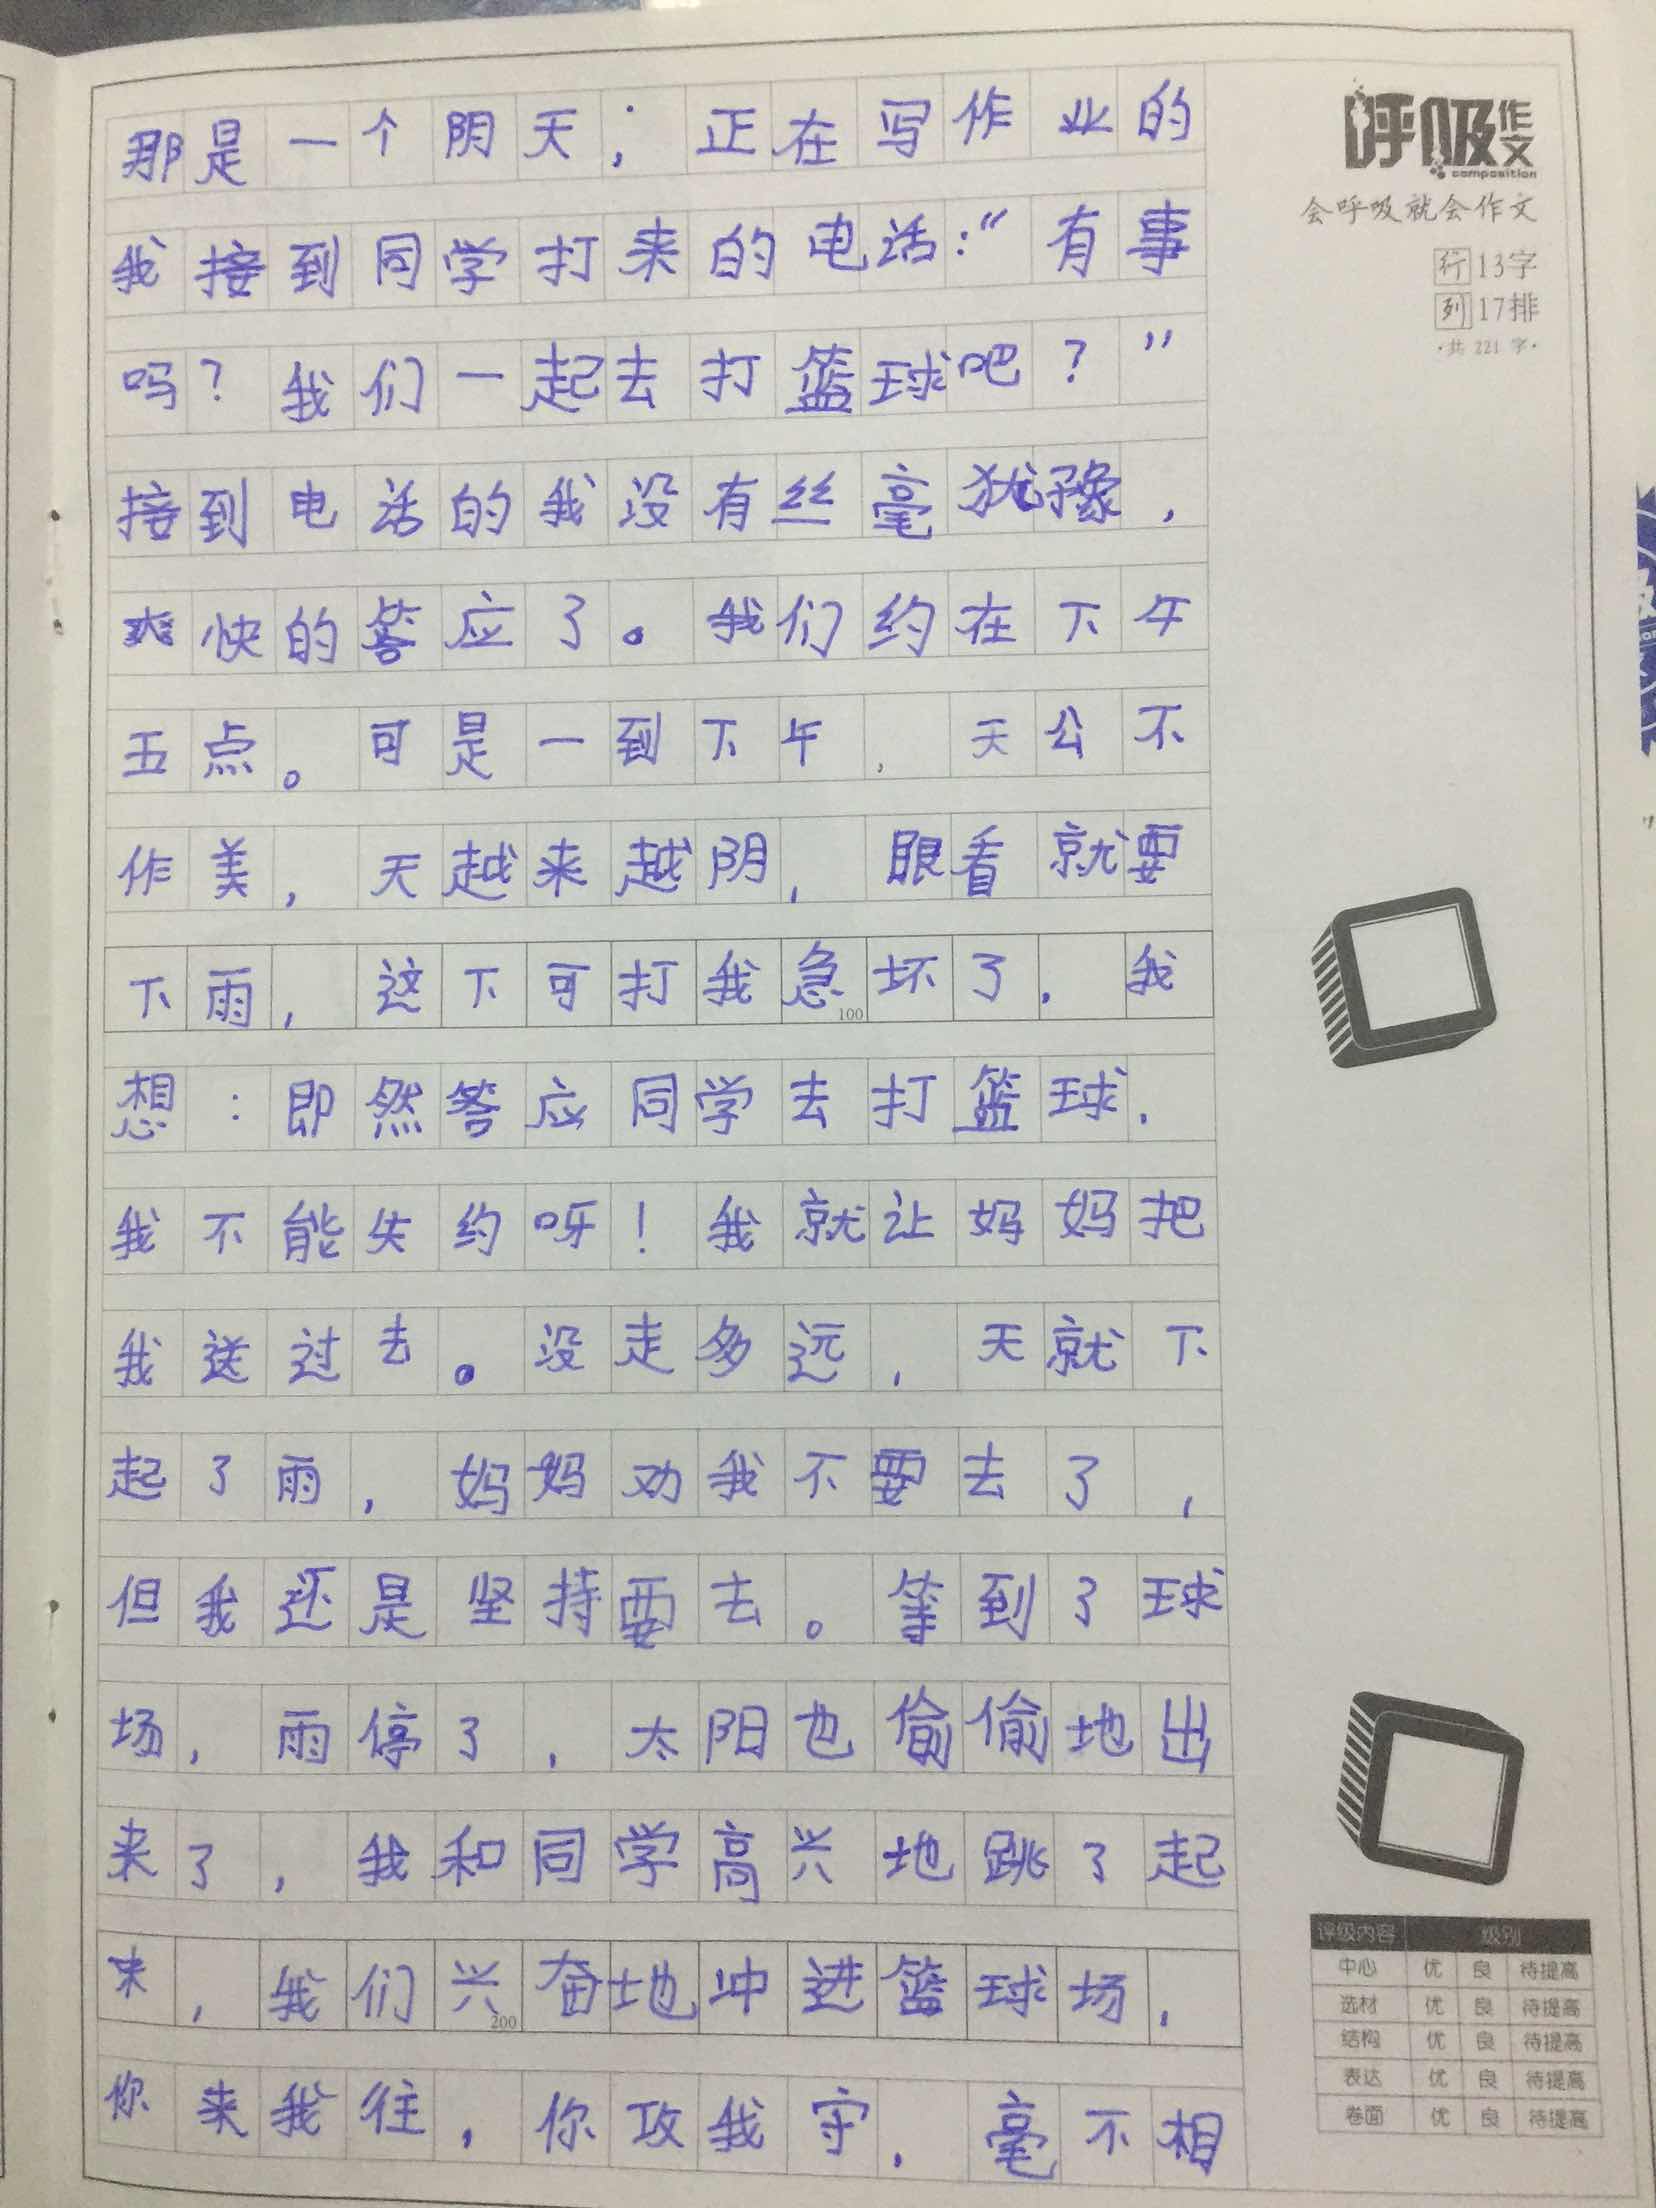 那是一个阴天；正在写作业的
我接到同学打来的电话：“有事
吗？我们一起去打篮球吧？”
接到电话的我没有丝毫犹豫，
爽快的答应了。我们约在下午
五点。可是一到下午，天公不
作美，天越来越阴，眼看就要
下雨，这下可打我急坏了．我
100
想：即然答应同学去打篮球．
我不能失约呀！我就让妈妈把
我送过去。没走多远，天就下
起了雨，妈妈劝我不要去了，
但我还是坚持要去。等到了球
场，雨停了，太阳也偷偷地出
来了，我和同学高兴地跳了起
来，我们兴奋地冲进篮球场，
200
你来我往，你攻我守，毫不相
呼吸作文
composition
会呼吸就会作文
行13字
列17排
·共 221 字·
评级内容 级别
中心 优 良 待提高
选材 优 良 待提高
结构 优 良 待提高
表达 优 良 待提高
卷面 优 良 待提高